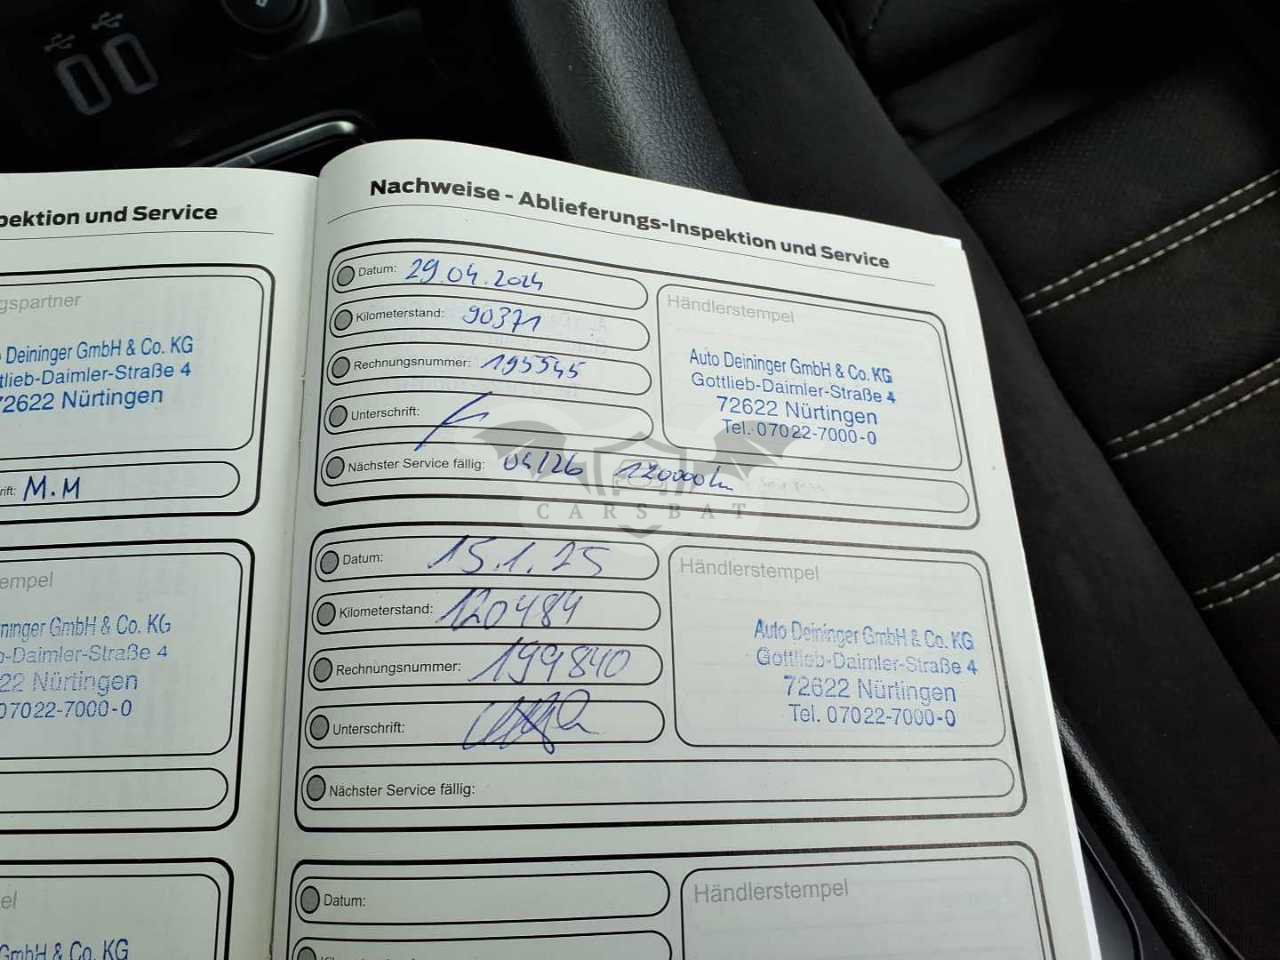 pektion und Service
gspartner
Auto Deininger GmbH & Co. KG
tlieb-Daimler-Straße 4
72622 Nürtingen
rift: M.M
empel
ninger GmbH & Co. KG
b-Daimler-Straße 4
22 Nürtingen
07022-7000-0
el
GmbH & Co. KG
Nachweise - Ablieferungs-Inspektion und Service
Datum: 29.04.2024
Kilometerstand: 90371
Rechnungsnummer: 195545
Unterschrift:
Nächster Service fällig: 04/26 120000km
Händlerstempel
Auto Deininger GmbH & Co. KG
Gottlieb-Daimler-Straße 4
72622 Nürtingen
Tel. 07022-7000-0
CARSBAT
Datum: 15.1.25
Kilometerstand: 120484
Rechnungsnummer: 199840
Unterschrift:
Nächster Service fällig:
Händlerstempel
Auto Deininger GmbH & Co. KG
Gottlieb-Daimler-Straße 4
72622 Nürtingen
Tel. 07022-7000-0
Datum:
Händlerstempel